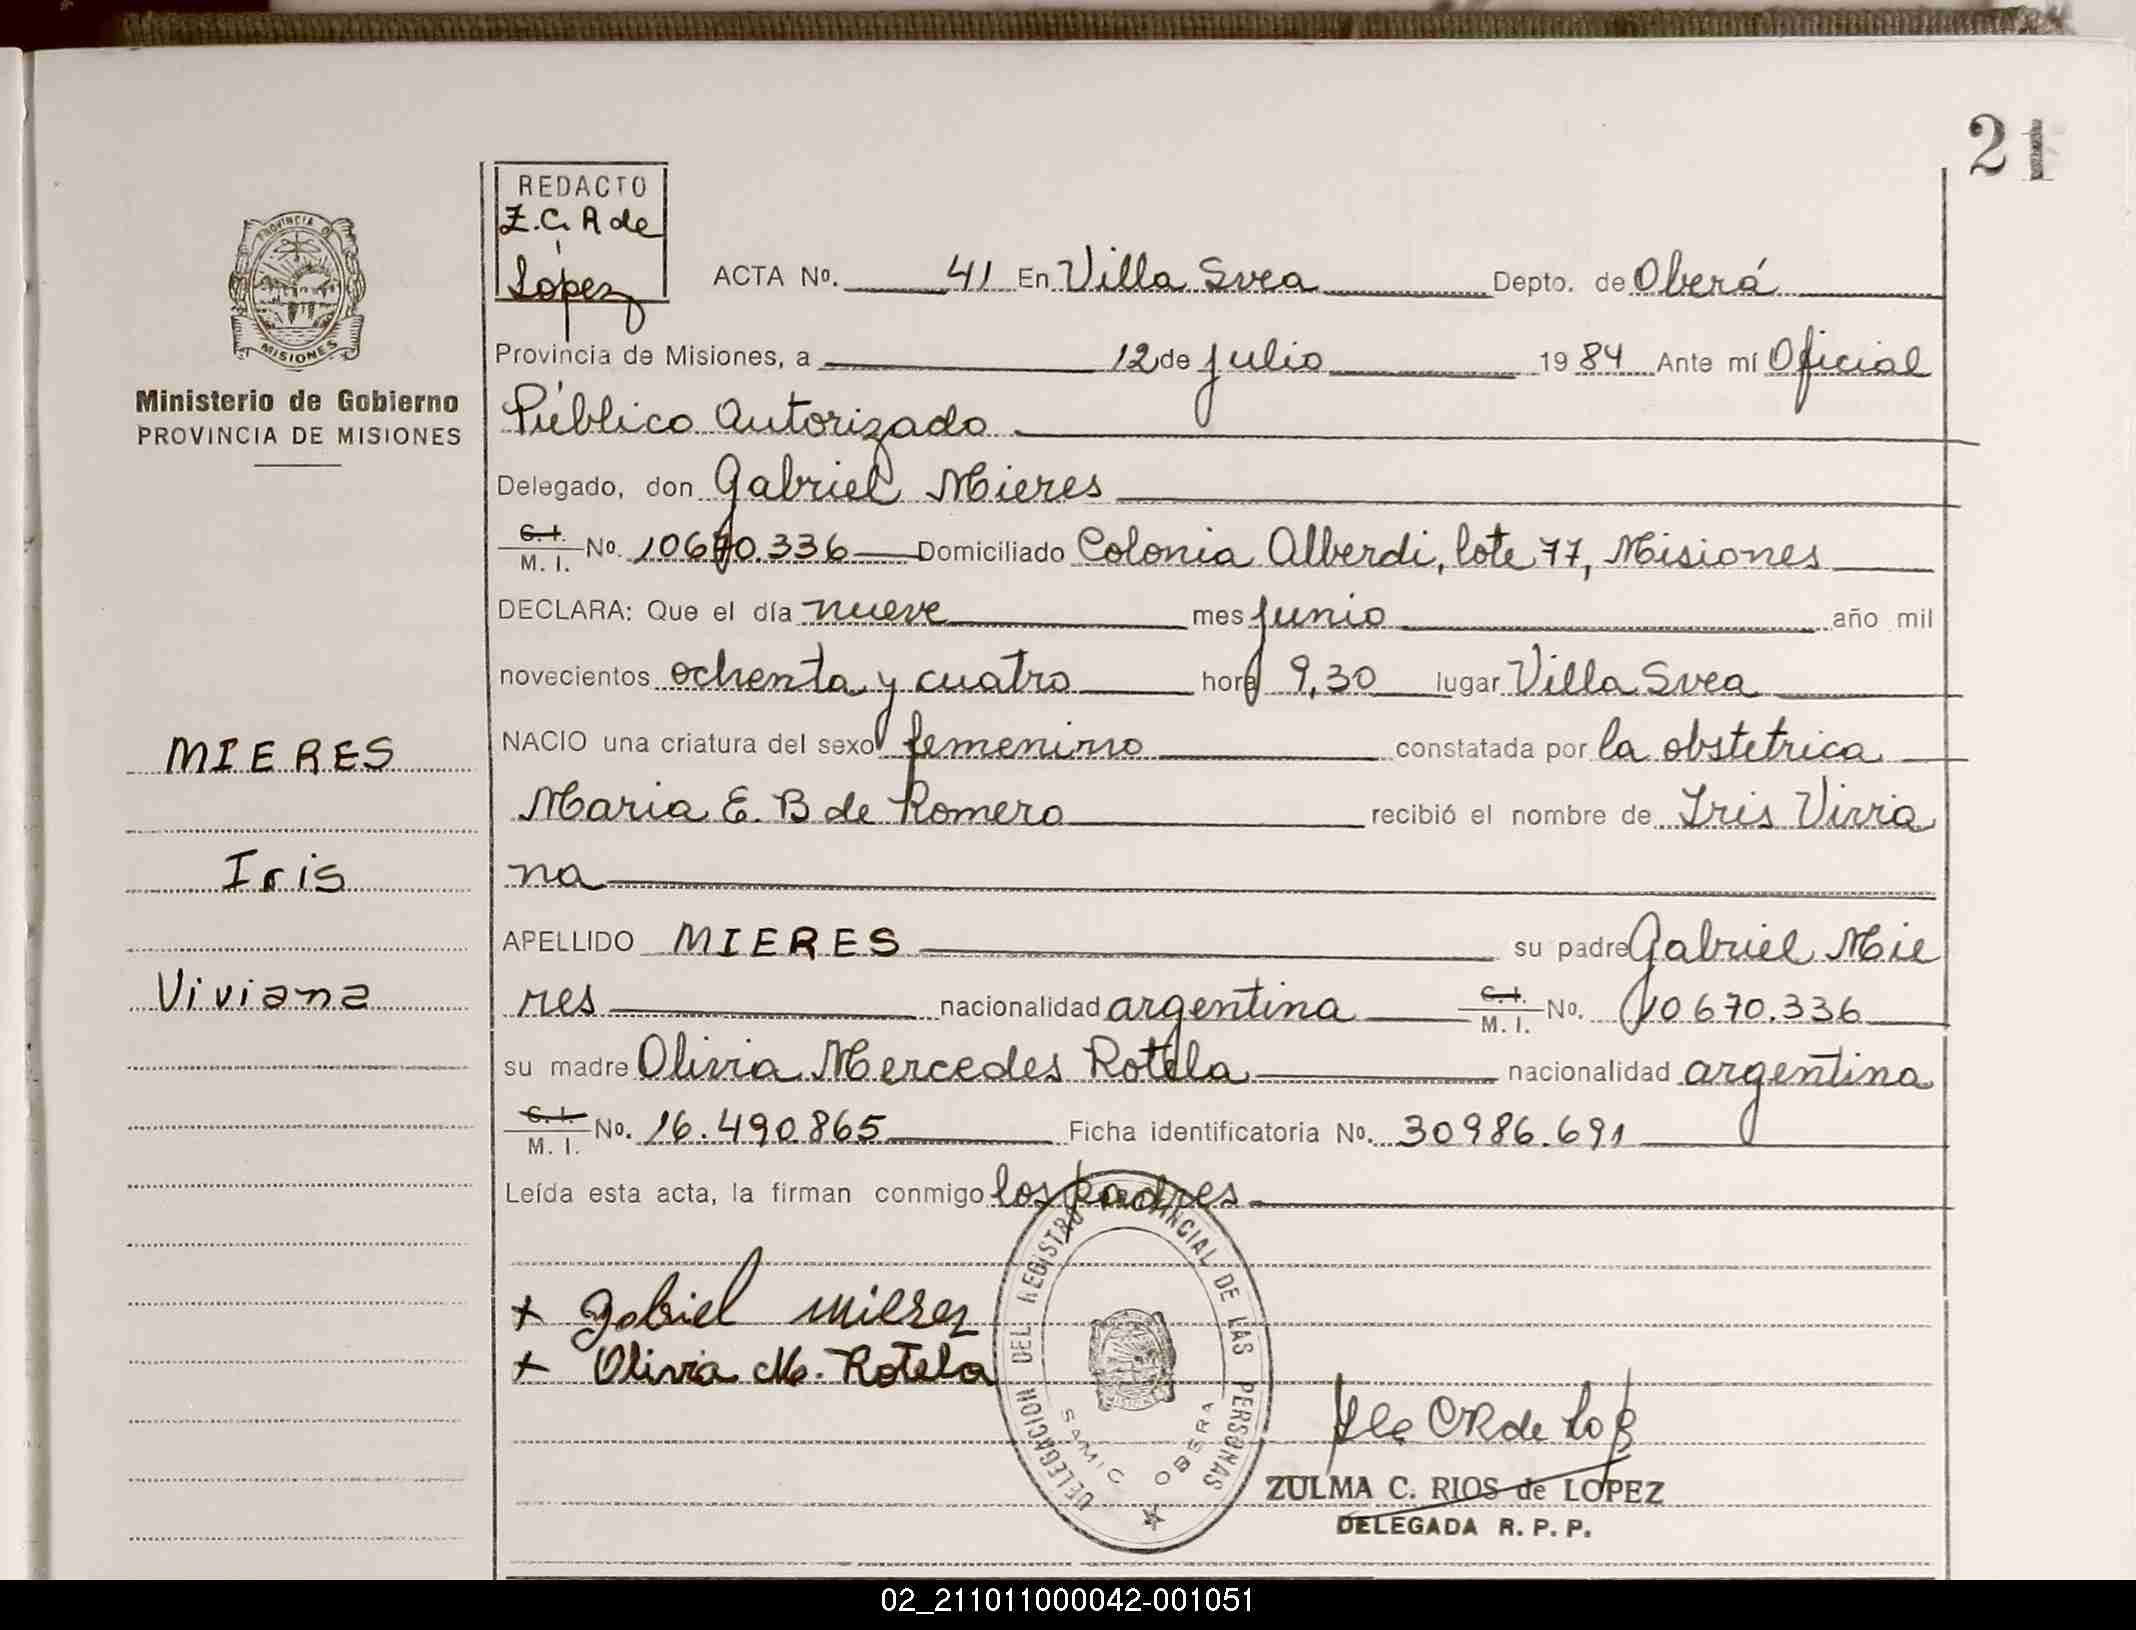 21
REDACTO
Z. C. R de
López
PROVINCIA DE
MISIONES
Ministerio de Gobierno
PROVINCIA DE MISIONES
ACTA Nº. 41 En Villa Svea Depto. de Oberá
Provincia de Misiones, a 12 de julio 1984 Ante mí Oficial
Público Autorizado
Delegado, don Gabriel Mieres
C. I.
M. I. Nº. 10670.336 Domiciliado Colonia Alberdi, lote 77, Misiones
DECLARA: Que el día nueve mes junio año mil
novecientos ochenta y cuatro hora 9,30 lugar Villa Svea
NACIO una criatura del sexo femenino constatada por la obstetrica
Maria E. B de Romero recibió el nombre de Iris Vivia
na
APELLIDO MIERES su padre Gabriel Mie
res nacionalidad argentina C. I. M. I. Nº. 10670.336
su madre Olivia Mercedes Rotela nacionalidad argentina
C. I.
M. I. Nº. 16.490.865 Ficha identificatoria Nº. 30986.691
Leída esta acta, la firman conmigo los padres
MIERES
Iris
Viviana
+ Gabriel Mieres
+ Olivia M. Rotela
DELEGACION DEL REGISTRO PROVINCIAL DE LAS PERSONAS
SAMIC OBERA
ZULMA C. RIOS de LOPEZ
DELEGADA R. P. P.
02_211011000042-001051